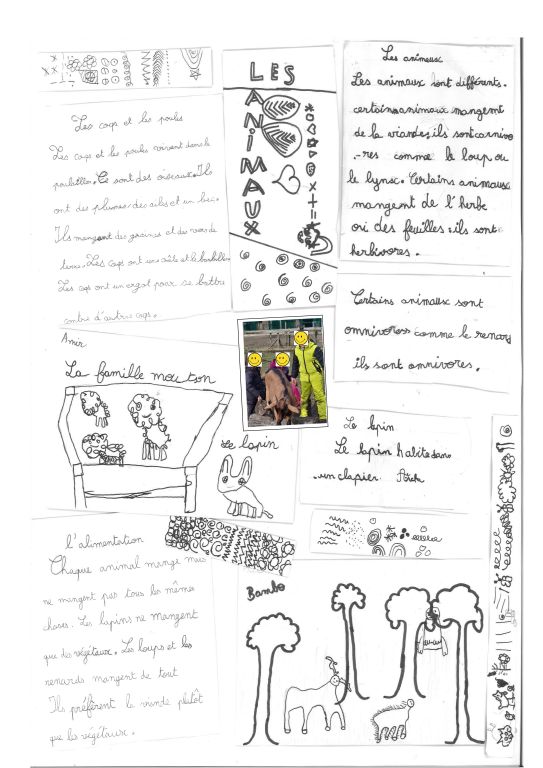 LES
ANiMAUX
Les animeux
Les animaux sont différents.
certains animaux mangent
de la viandes, ils sont carnivo
-res comme le loup ou
le lynx. Certains animaux
mangent de l'herbe
ou des feuilles : ils sont
herbivores.
Certains animaux sont
omnivores comme le renard
ils sont omnivores.
Les coqs et les poules
Les coqs et les poules vivent dans le
poulailler. Ce sont des oiseaux. Ils
ont des plumes, des ailes et un bec.
Ils mangent des graines et des vers de
terre. Les coqs ont une crête et
Les coqs ont un ergot pour se battre
contre d'autres coqs.
Amir
La famille mouton
Le lapin
Le lapin
Le lapin habite dans
un clapier.
l'alimentation
Chaque animal mange mais
ne mangent pas tous les mêmes
choses. Les lapins ne mangent
que des végétaux. Les loups et les
renards mangent de tout
Ils préfèrent la viande plutôt
que les végétaux.
Bambo